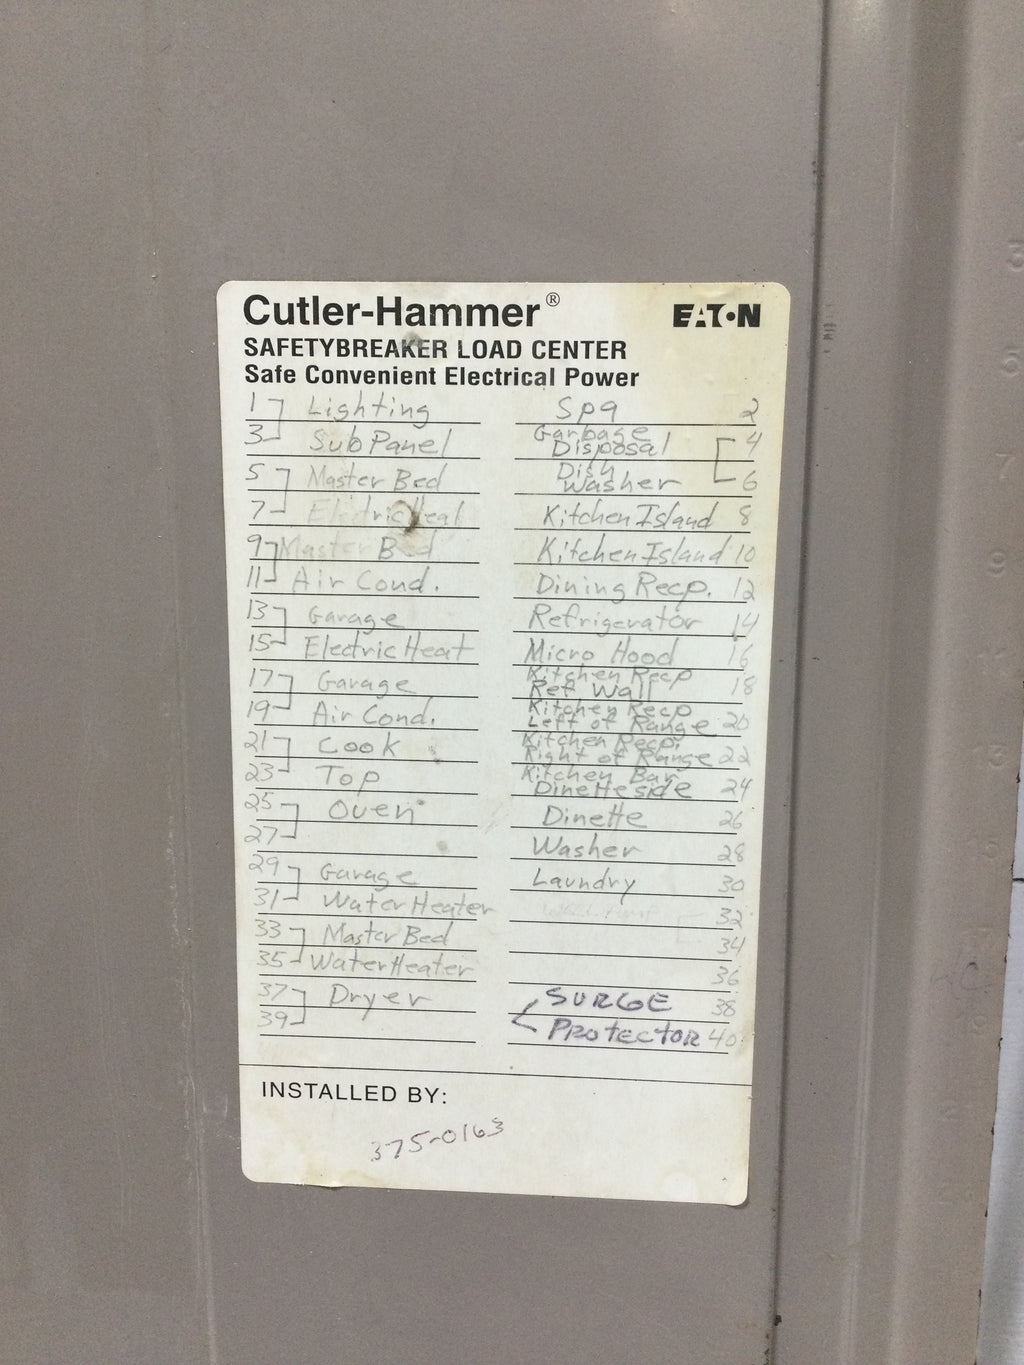 Cutler-Hammer®
EAT·N
SAFETYBREAKER LOAD CENTER
Safe Convenient Electrical Power
1 Lighting
3 Sub Panel
5 Master Bed
7 Electric Heat
9 Master Bed
11 Air Cond.
13 Garage
15 Electric Heat
17 Garage
19 Air Cond.
21 Cook
23 Top
25 Oven
27
29 Garage
31 Water Heater
33 Master Bed
35 Water Heater
37 Dryer
39
Spa 2
Garbage
Disposal 4
Dish
Washer 6
Kitchen Island 8
Kitchen Island 10
Dining Recp. 12
Refrigerator 14
Micro Hood 16
Kitchen Recp
Ref Wall 18
Kitchen Recp
Left of Range 20
Kitchen Recp.
Right of Range 22
Kitchen Bar
Dinette side 24
Dinette 26
Washer 28
Laundry 30
32
34
36
SURGE 38
PROTECTOR 40
INSTALLED BY:
375-0163